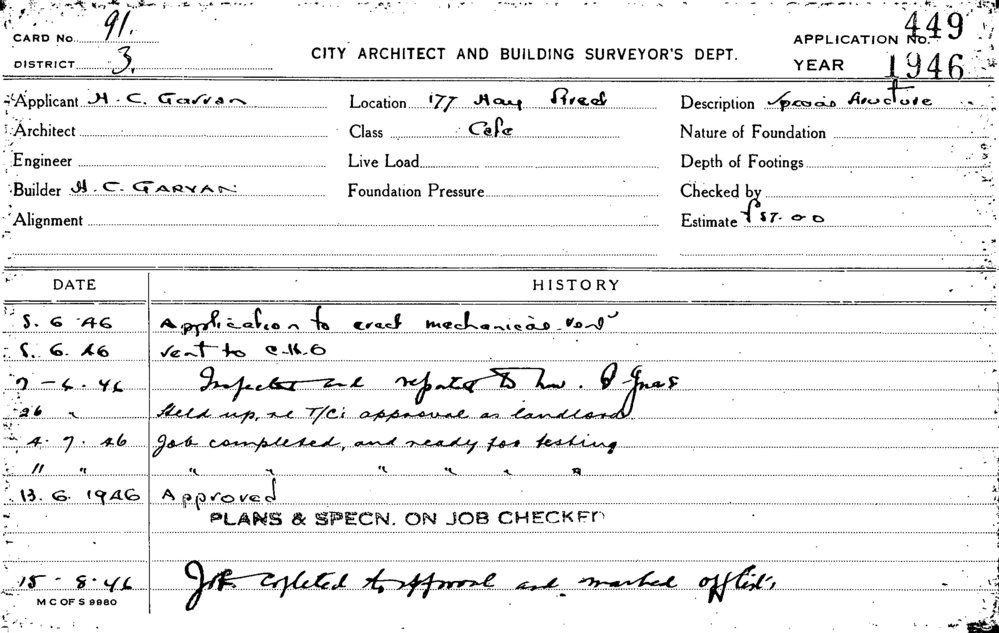 CARD No. 91.
APPLICATION No. 449
DISTRICT 3.
CITY ARCHITECT AND BUILDING SURVEYOR'S DEPT.
YEAR 1946
Applicant H. C. Garvan Location 177 Hay Street Description Special Structure
Architect Class Cafe Nature of Foundation
Engineer Live Load Depth of Footings
Builder H. C. GARVAN Foundation Pressure Checked by
Alignment Estimate £57.00
DATE HISTORY
5. 6 46 Application to erect mechanical vent
5. 6. 46 sent to C.H.O
7 - 6. 46 Inspected and reported to
26 " Held up, re T/C; approval as landlord
4. 7. 46 Job completed, and ready for testing
11 " " " " " " "
13. 6. 1946 Approved
PLANS & SPECN. ON JOB CHECKED
15 - 8 - 46 Job copleted to approval and marked off
M C OF S 9980